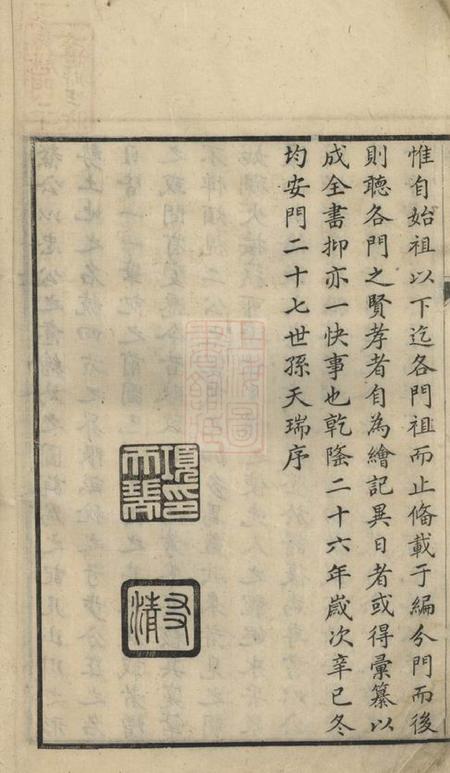 惟自始祖以下迄各門祖而止俻載于編分門而後
則聽各門之賢孝者自為繪記異日者或得彙纂以
成全書抑亦一快事也乾隆二十六年歲次辛巳冬
均安門二十七世孫天瑞序
項印天瑞